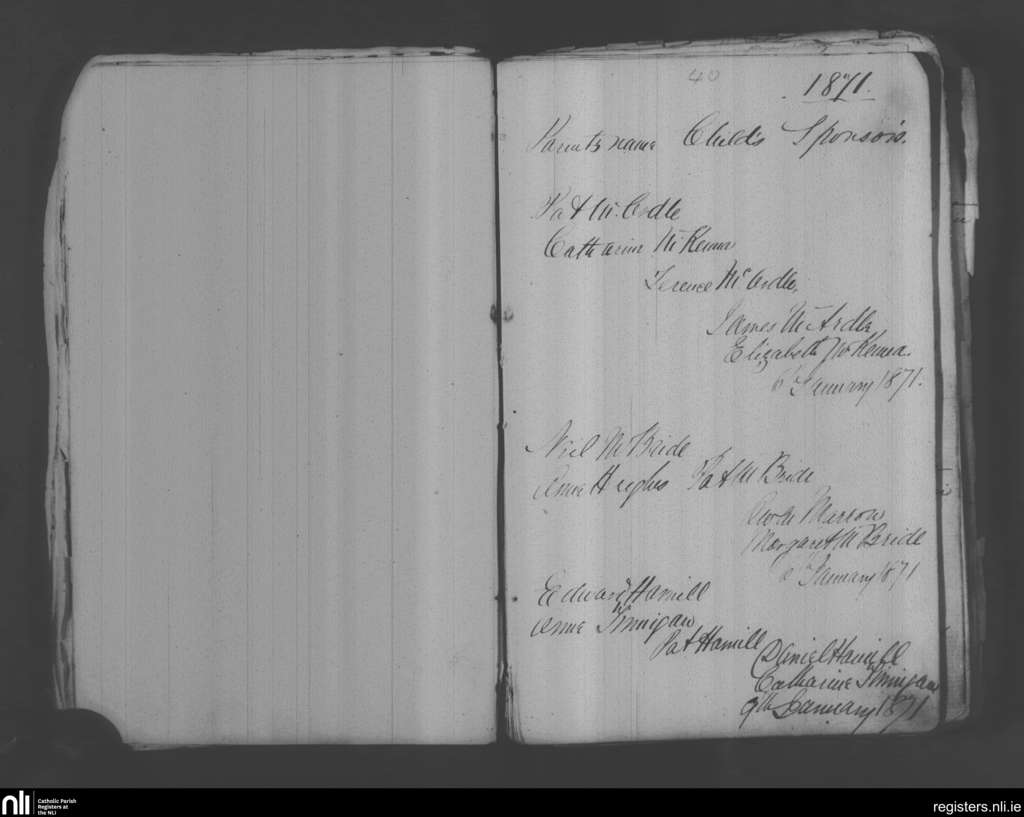 40
1871.
Parents name Child's Sponsors.
Pat McArdle
Catharine McKenna
Terence McArdle,
James McArdle
Elizabeth McKenna.
6th January 1871.
Niel McBride
Anne Hughes Pat McBride
Margaret McBride
6th January 1871
Edward Hamill
Anne Finnigan
Pat Hamill
Daniel Hamill
Catharine Finnigan
9th January 1871
nli
Catholic Parish
Registers at
the NLI
registers.nli.ie